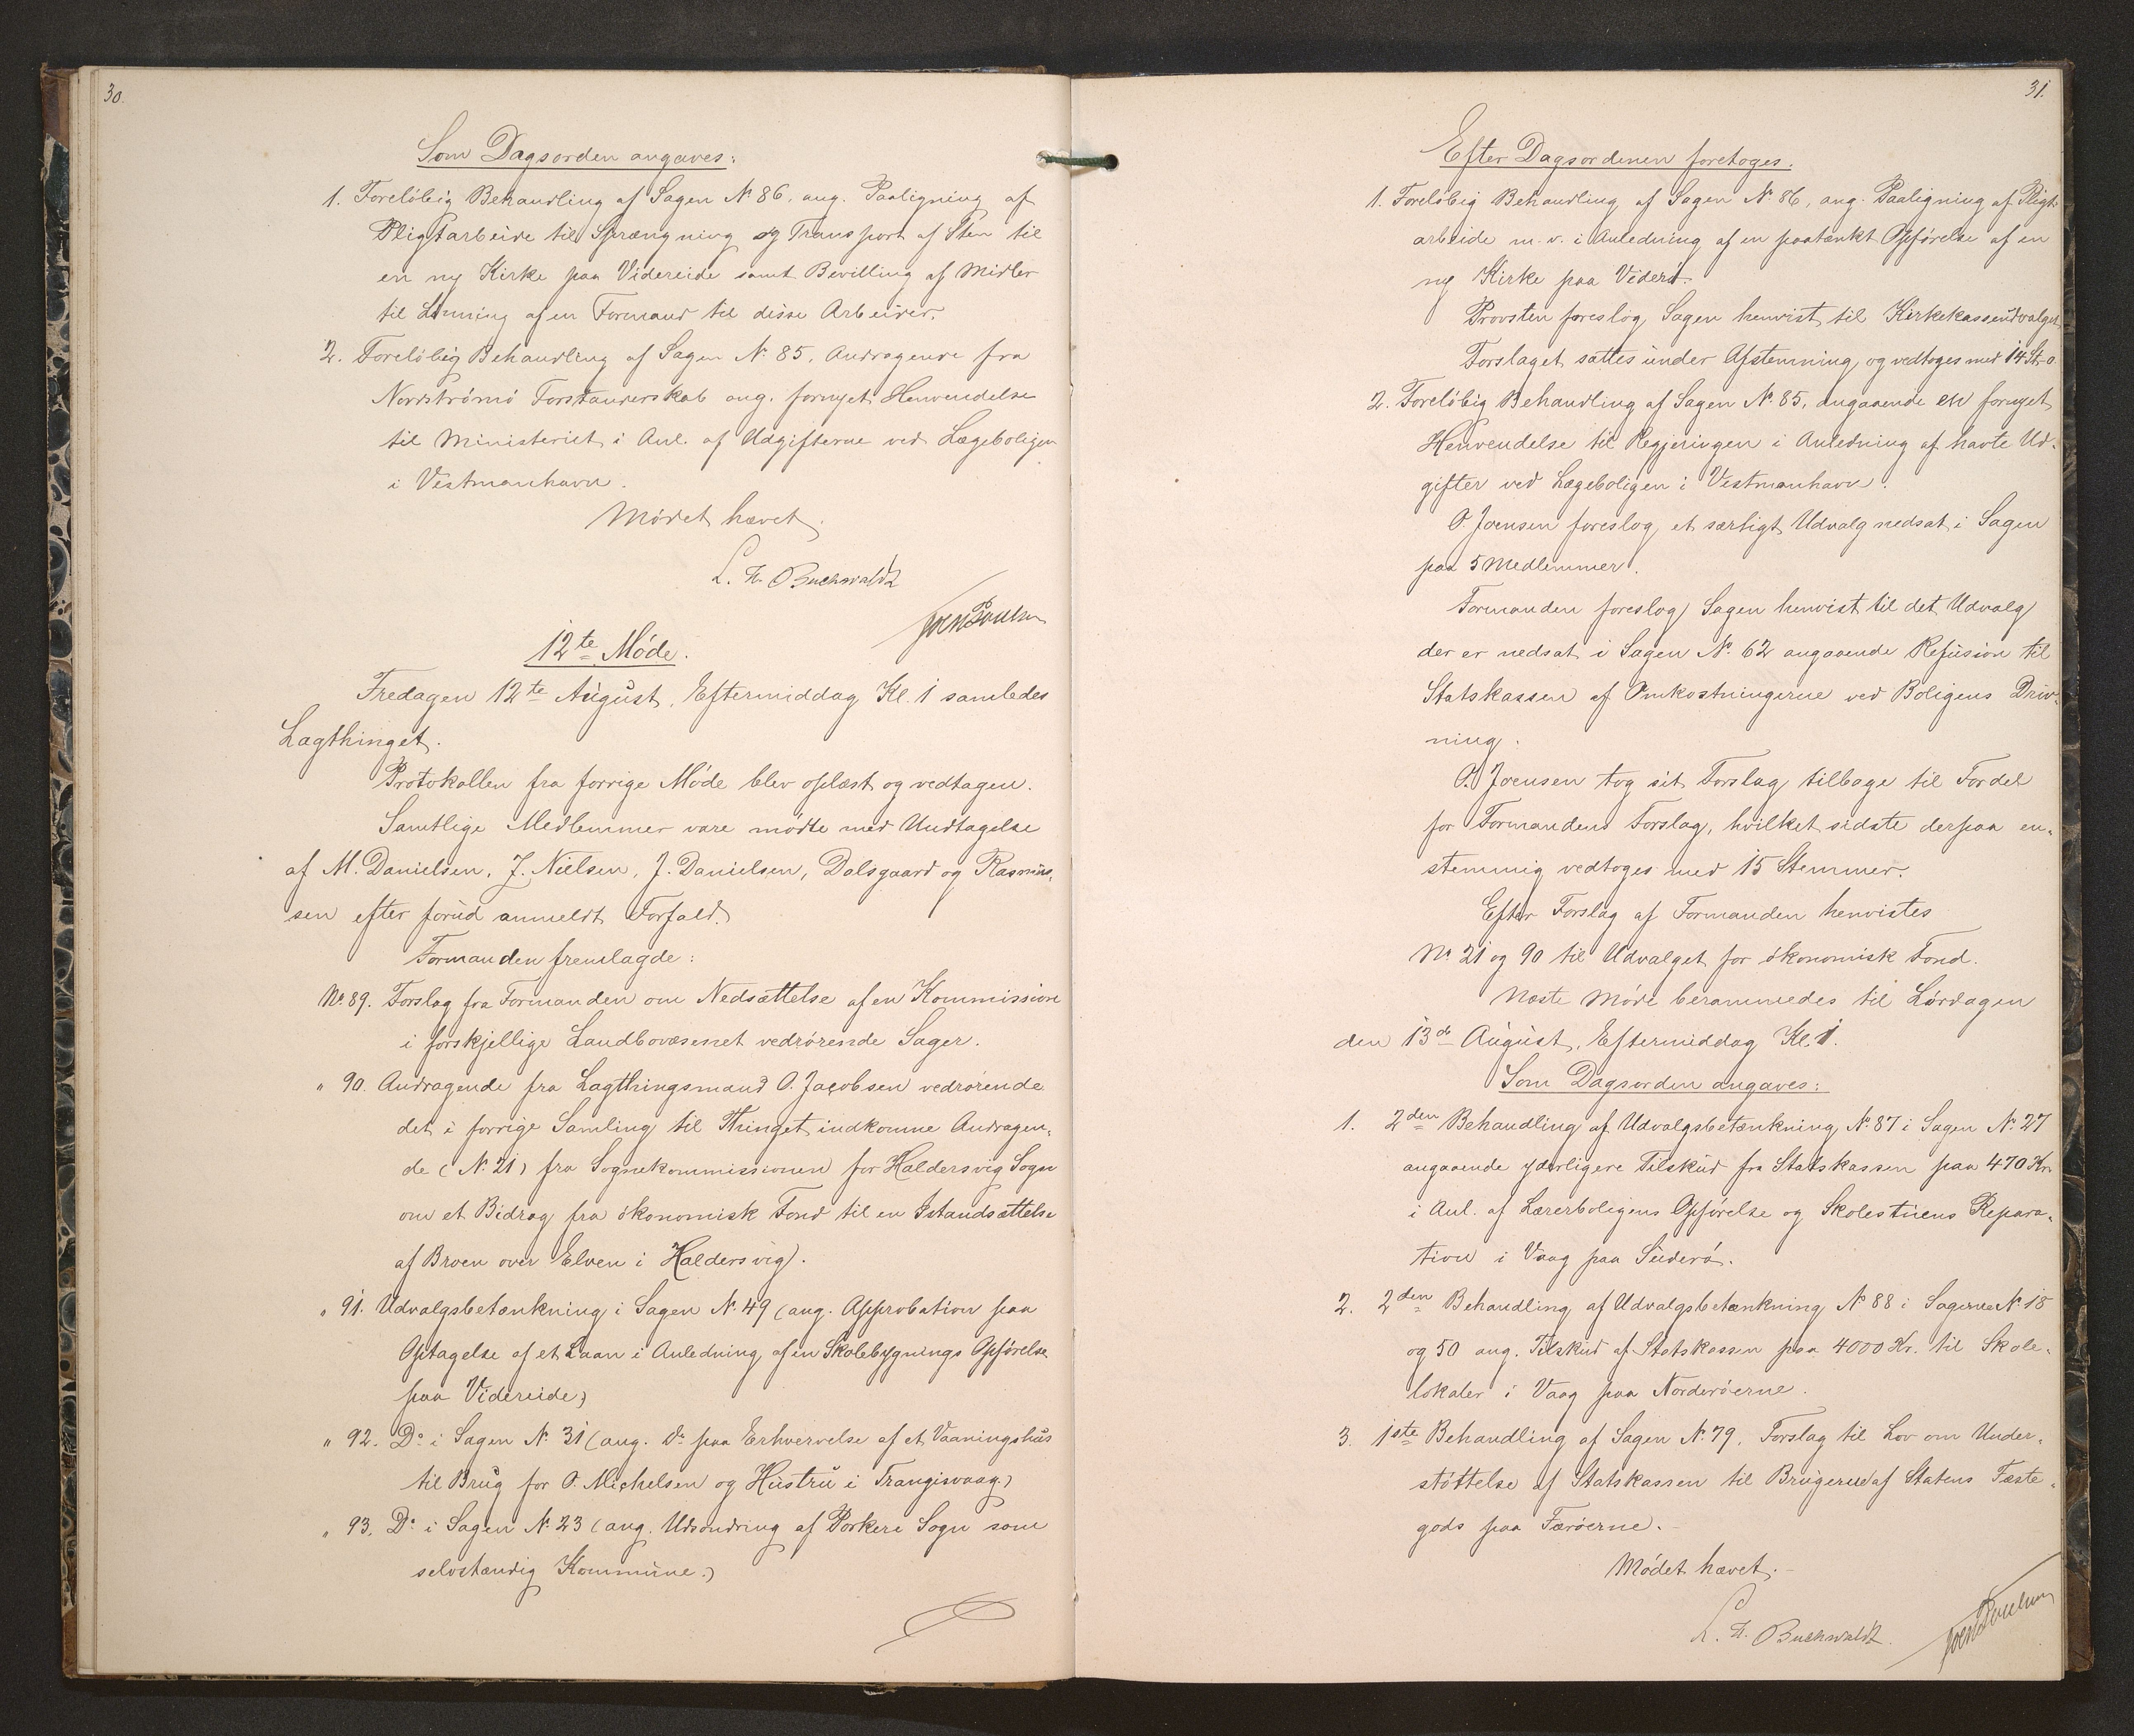 30.
Som Dagsorden angaves:
1. Foreløbig Behandling af Sagen No 86, ang. Paaligning af
Pligtarbeide til Sprængning og Transport af Sten til
en ny Kirke paa Videreide samt Bevilling af Midler
til Lønning af en Formand til disse Arbeider.
2. Foreløbig Behandling af Sagen No 85, Andragende fra
Nordstrømø Forstanderskab ang. fornyet Henvendelse
til Ministeriet i Anl. af Udgifterne ved Lægeboligen
i Vestmanhavn.
Mødet hævet.
L. H. Buchwaldt
Joen Poulsen
12te Møde.
Fredagen 12te August, Eftermiddag Kl. 1 samledes
Lagthinget.
Protokollen fra forrige Møde blev oplæst og vedtagen.
Samtlige Medlemmer vare mødte med Undtagelse
af M. Danielsen, J. Nielsen, J. Danielsen, Dalsgaard og Rasmus-
sen efter forud anmeldt Forfald.
Formanden fremlagde:
No 89. Forslag fra Formanden om Nedsættelse af en Kommission
i forskjellige Landbovæsenet vedrørende Sager.
" 90. Andragende fra Lagthingsmand O. Jacobsen vedrørende
det i forrige Samling til Thinget indkomne Andragen-
de (No 21) fra Sognekommissionen for Haldersvig Sogn
om et Bidrag fra økonomisk Fond til en Istandsættelse
af Broen over Elven i Haldersvig).
" 91. Udvalgsbetænkning i Sagen No 49 (ang. Approbation paa
Optagelse af et Laan i Anledning af en Skolebygnings Opførelse
paa Videreide)
" 92. Do i Sagen No 31 (ang. Do paa Erhvervelse af et Vaaningshus
til Brug for O. Michelsen og Hustru i Trangisvaag.)
" 93. Do i Sagen No 23 (ang. Udsondring af Porkere Sogn som
selvstændig Kommune.)
31.
Efter Dagsordenen foretoges.
1. Foreløbig Behandling af Sagen No 86, ang. Paaligning af Pligt-
arbeide m. v. i Anledning af en paatænkt Opførelse af en
ny Kirke paa Viderø.
Provsten foreslog Sagen henvist til Kirkekasseudvalget
Forslaget sattes under Afstemning og vedtoges med 14 St. o.
2. Foreløbig Behandling af Sagen No 85, angaaende en fornyet
Henvendelse til Regjeringen i Anledning af havte Ud-
gifter ved Lægeboligen i Vestmanhavn.
O. Joensen foreslog et særligt Udvalg nedsat i Sagen
paa 5 Medlemmer.
Formanden foreslog Sagen henvist til det Udvalg
der er nedsat i Sagen No 62 angaaende Refusion til
Statskassen af Omkostningerne ved Boligens Driv-
ning.
O. Joensen tog sit Forslag tilbage til Fordel
for Formandens Forslag, hvilket sidste derpaa en-
stemmig vedtoges med 15 Stemmer.
Efter Forslag af Formanden henvistes
No 21 og 90 til Udvalget for økonomisk Fond.
Næste Møde berammedes til Lørdagen
den 13de August, Eftermiddag Kl. 1.
Som Dagsorden angaves:
1. 2den Behandling af Udvalgsbetænkning No 87 i Sagen No 27
angaaende yderligere Tilskud fra Statskassen paa 470 Kr.
i Anl. af Lærerboligens Opførelse og Skolestuens Repara-
tion i Vaag paa Suderø.
2. 2den Behandling af Udvalgsbetænkning No 88 i Sagerne No 18
og 50 ang. Tilskud af Statskassen paa 4000 Kr. til Skole-
lokaler i Vaag paa Norderøerne.
3. 1ste Behandling af Sagen No 79, Forslag til Lov om Under-
støttelse af Statskassen til Brugerne af Statens Fæste-
gods paa Færøerne.
Mødet hævet.
L. H. Buchwaldt.
Joen Poulsen